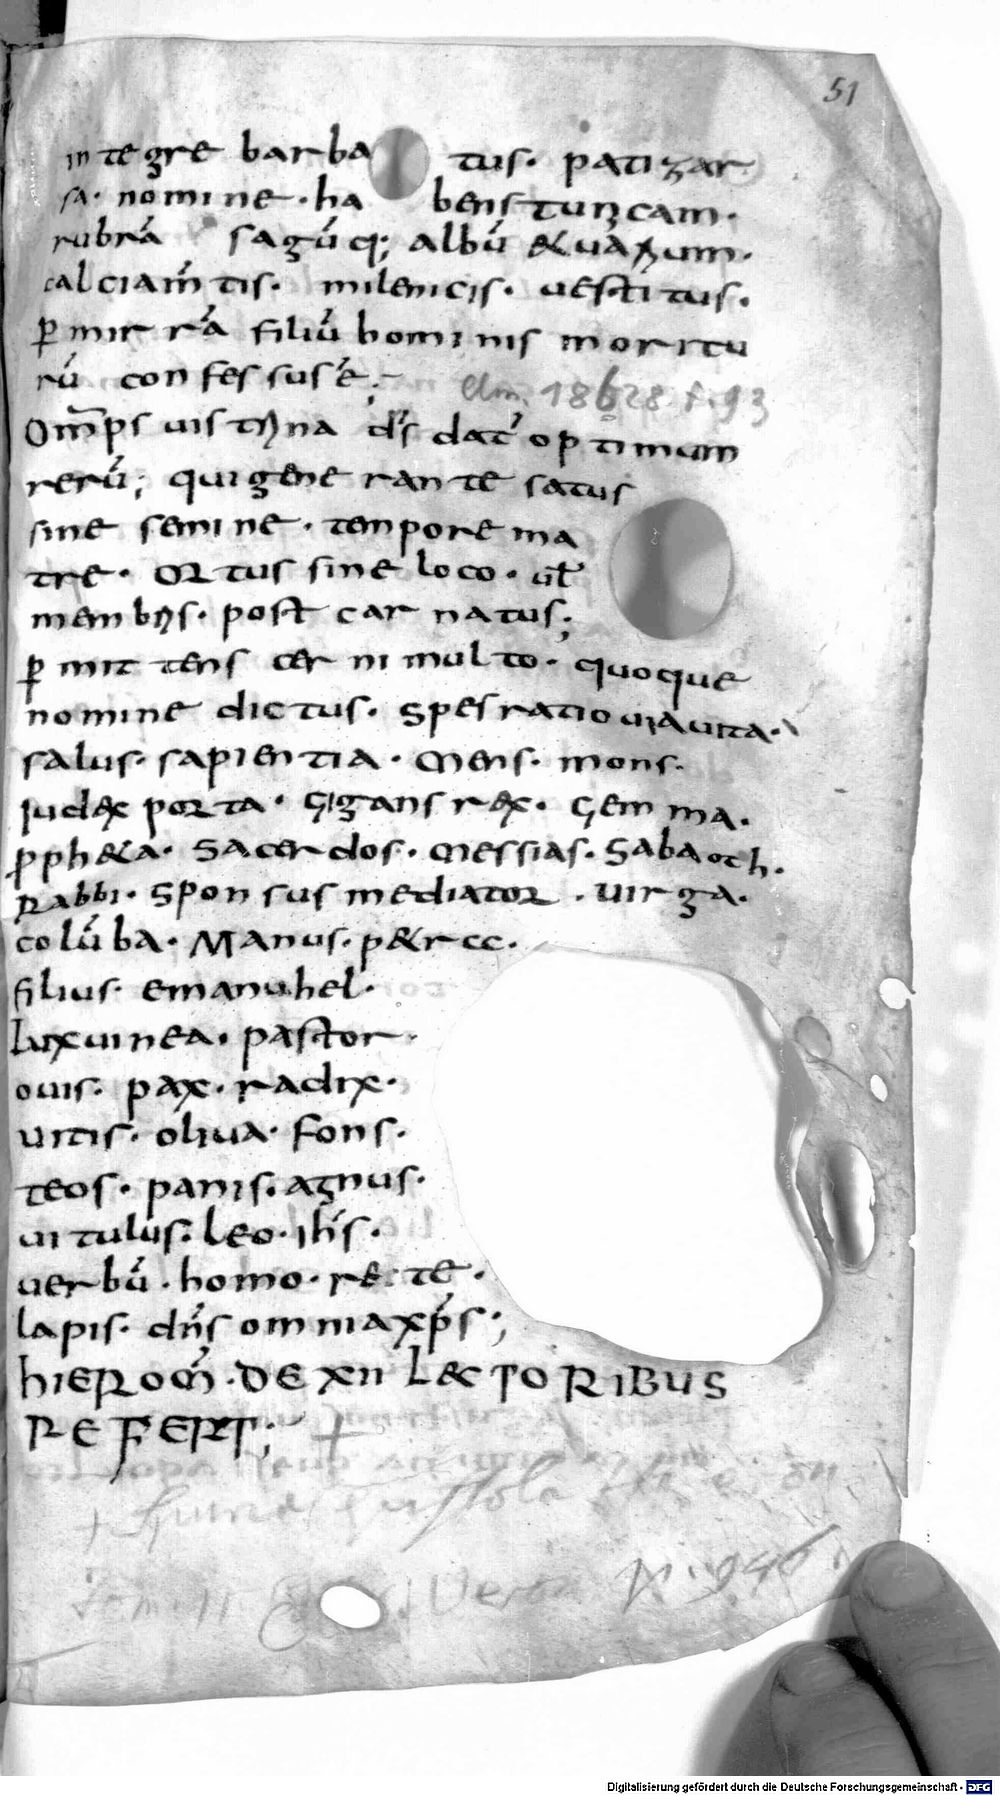 51
integre barba tus. patizar
sa. nomine. ha bens tunicam.
rubrā sagūq; albū & uarium.
calciam̄tis. milenicis. uestitus.
ꝑ mir rā filiū hominis moritu
rū confessus ē;
clm. 18628 f. 93
Om̄ps d̄s dat' optimum
rerū; qui generante satus
sine semine. tempore ma
tre. ortus sine loco. ul̄
membris. post car natus;
ꝑ mit tens cer ni multo. quoque
nomine dictus. spes ratio uia uita.
salus. sapientia. mens. mons.
iudex porta. gigans rex. gem ma.
ꝓph&a. sacerdos. messias. sabaoth.
Rabbi. sponsus mediator. uirga.
colūba. Manus. p&rcc.
filius. emanuhel.
lux uinea. pastor.
ouis. pax. radix.
uitis. oliua. fons.
teos. panis. agnus.
uitulus. leo. ih̄s.
uerbū. homo. re te.
lapis. dn̄s omnia xp̄s;
hIEROm̄. DE XII L&TORIBUS
REFERT; +
Digitalisierung gefördert durch die Deutsche Forschungsgemeinschaft - DFG